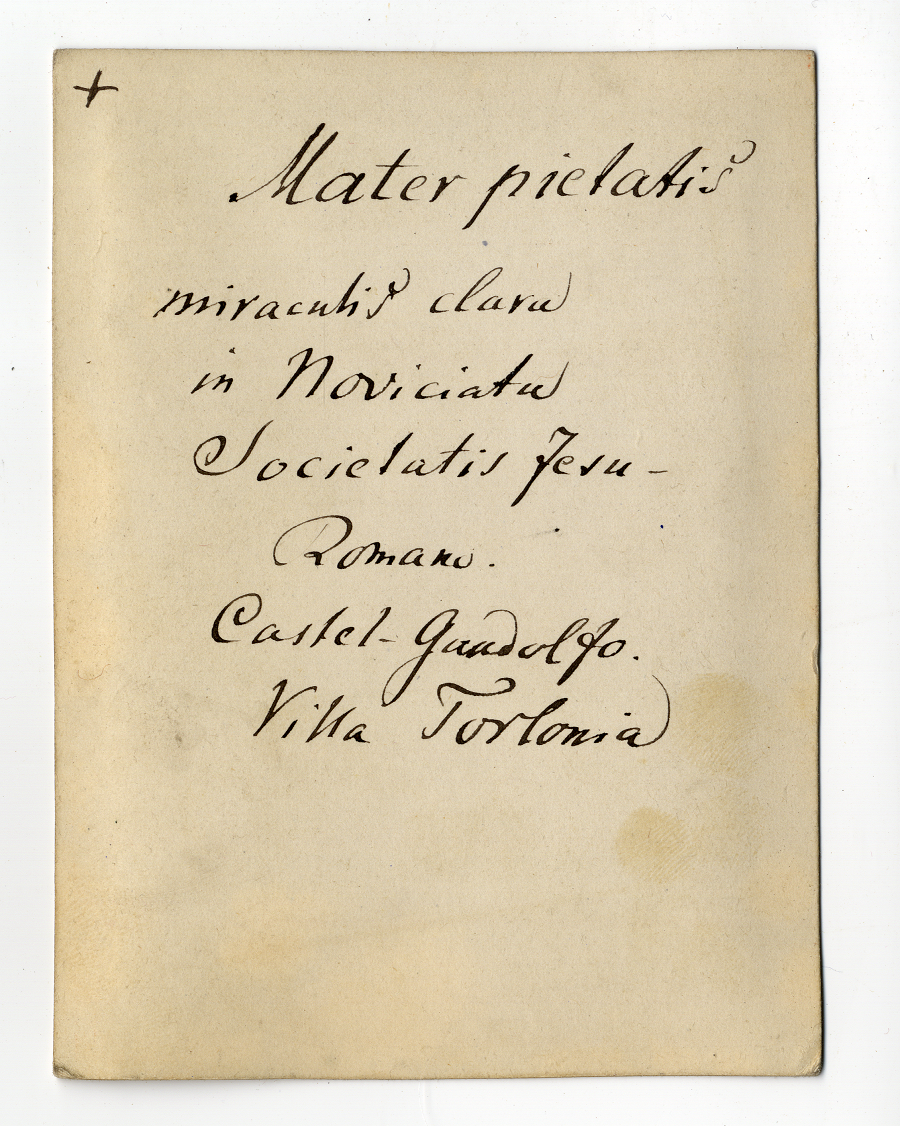 +
Mater pietatis
miraculis clara
in Noviciatu
Societatis Jesu-
Romano.
Castel-Gandolfo.
Villa Torlonia